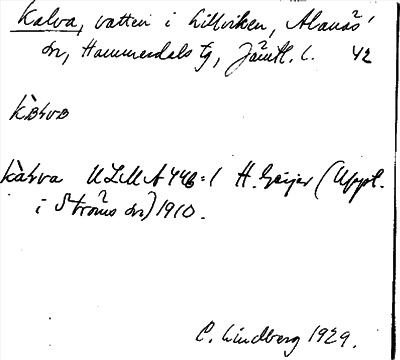 Kalva, vatten i Lillviken, Alanäs'
sn, Hammerdals tg, Jämtl. l. 42
kàrva ULMA 446:1 H. Geijer (Uppt.
i Ströms sn) 1910.
C. Lindberg 1929.